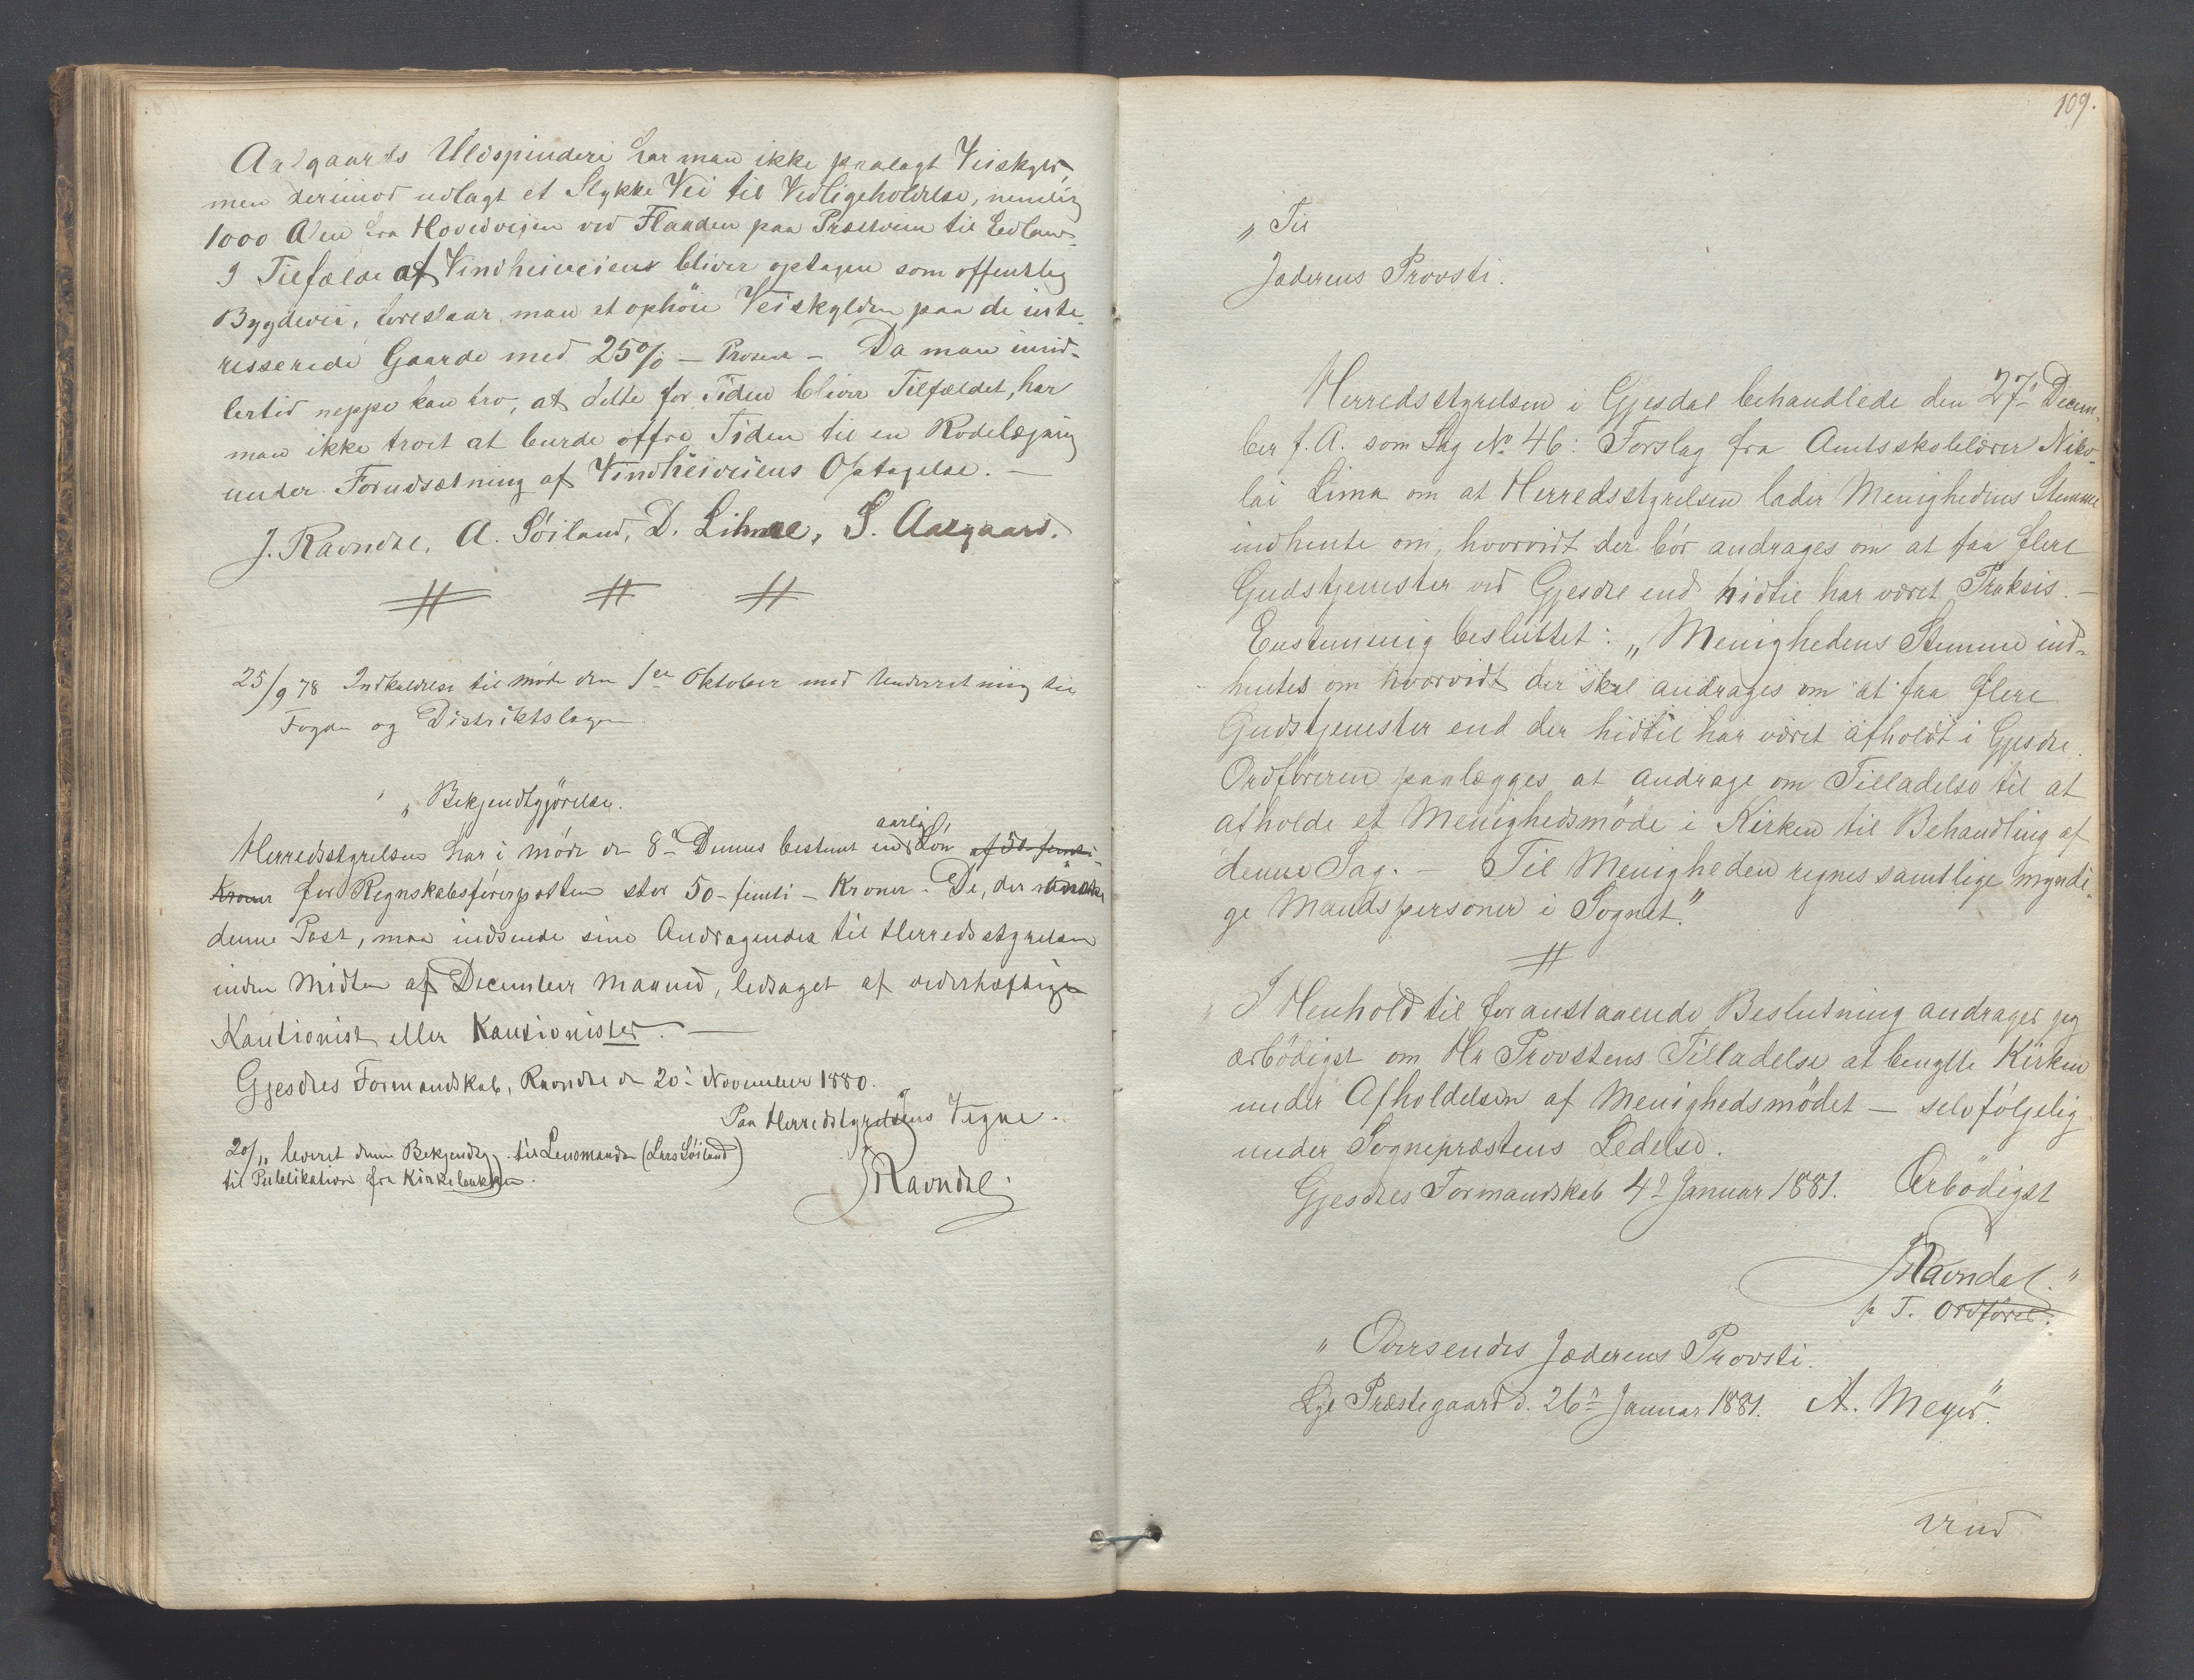 Aalgaards Uldspinderi har man ikke paalagt Veiskyld,
men derimod udlagt et Stykke Vei til Vedligeholdelse, nemlig
1000 Alen fra Hovedveien ved Flaaden paa Præstveien til Edland.
I Tilfælde af Vindheiveiens bliver optagen som offentlig
Bygdevei, foreslaar man at ophöie Veiskylden paa de inte-
resserede Gaarde med 25% – Prosent – Da man imid-
lertid neppe kan tro, at dette for Tiden bliver Tilfældet, har
man ikke troet at burde offre Tiden til en Rodelægning
under Forudsætning af Vindheiveiens Optagelse. –
J. Ravndal, A. Söiland, D. Lihmae, S. Aalgaard.
25/9 78 Indkaldelse til Möde den 1ste Oktober med Underretning til
Fogden og Distriktslægen
„Bekjendtgjörelse.
Herredsstyrelsen har i Möde den 8de Dennes bestemt en aarlig Lön af 50 femti
Kroner for Regnskabsförerposten stor 50 – femti – Kroner. De, der önske
denne Post, maa indsende sine Andragender til Herredsstyrelsen
inden Midten af December Maaned, ledsaget af vederhæftige
Kautionist eller Kautionister. –
Gjesdals Formandskab, Ravndal den 20de November 1880.
Paa Herredstyrelsens Vegne.
20/11 leveret denne Bekjendtg. til Lensmanden (Lars Söiland)
til Publikation fra Kirkebakken.
JRavndal.
109.
„Til
Jæderens Provsti.
Herredsstyrelsen i Gjesdal behandlede den 27de Decem-
ber f. A. som Sag No 46: Forslag fra Amtsskolelærer Niko-
lai Lima om at Herredsstyrelsen lader Menighedens Stemme
indhente om, hvorvidt der bör andrages om at faa flere
Gudstjenester ved Gjesdal end hidtil har været Praksis. –
Enstemmig besluttet: „Menighedens Stemme ind-
hentes om hvorvidt der skal andrages om at faa flere
Gudstjenester end der hidtil har været afholdt i Gjesdal.
Ordföreren paalægges at andrage om Tilladelse til at
afholde et Menighedsmöde i Kirken til Behandling af
denne Sag. – Til Menigheden regnes samtlige myndi-
ge Mandspersoner i Sognet."
„I Henhold til foranstaaende Beslutning andrager jeg
ærbödigst om Hr Provstens Tilladelse at benytte Kirken
under Afholdelsen af Menighedsmödet – selvfölgelig
under Sognepræstens Ledelse.
Gjesdals Formandskab 4de Januar 1881. Ærbödigst
JRavndal."
p. T. Ordförer.
„Oversendes Jæderens Provsti.
Lye Præstegaard d. 26de Januar 1881. A. Meyer."
Vend